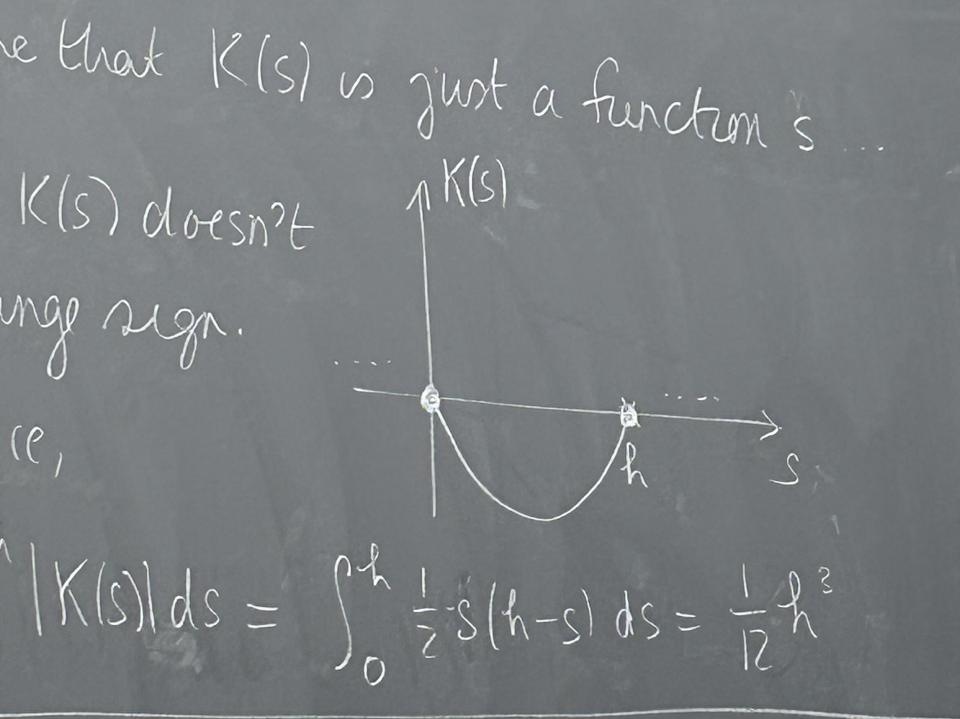 that K(s) is just a function s ...
K(s)
K(s) doesn't
sign.
....
....
h
s
|K(s)|ds = ∫₀ʰ 1/2 s(h-s) ds = 1/12 h³